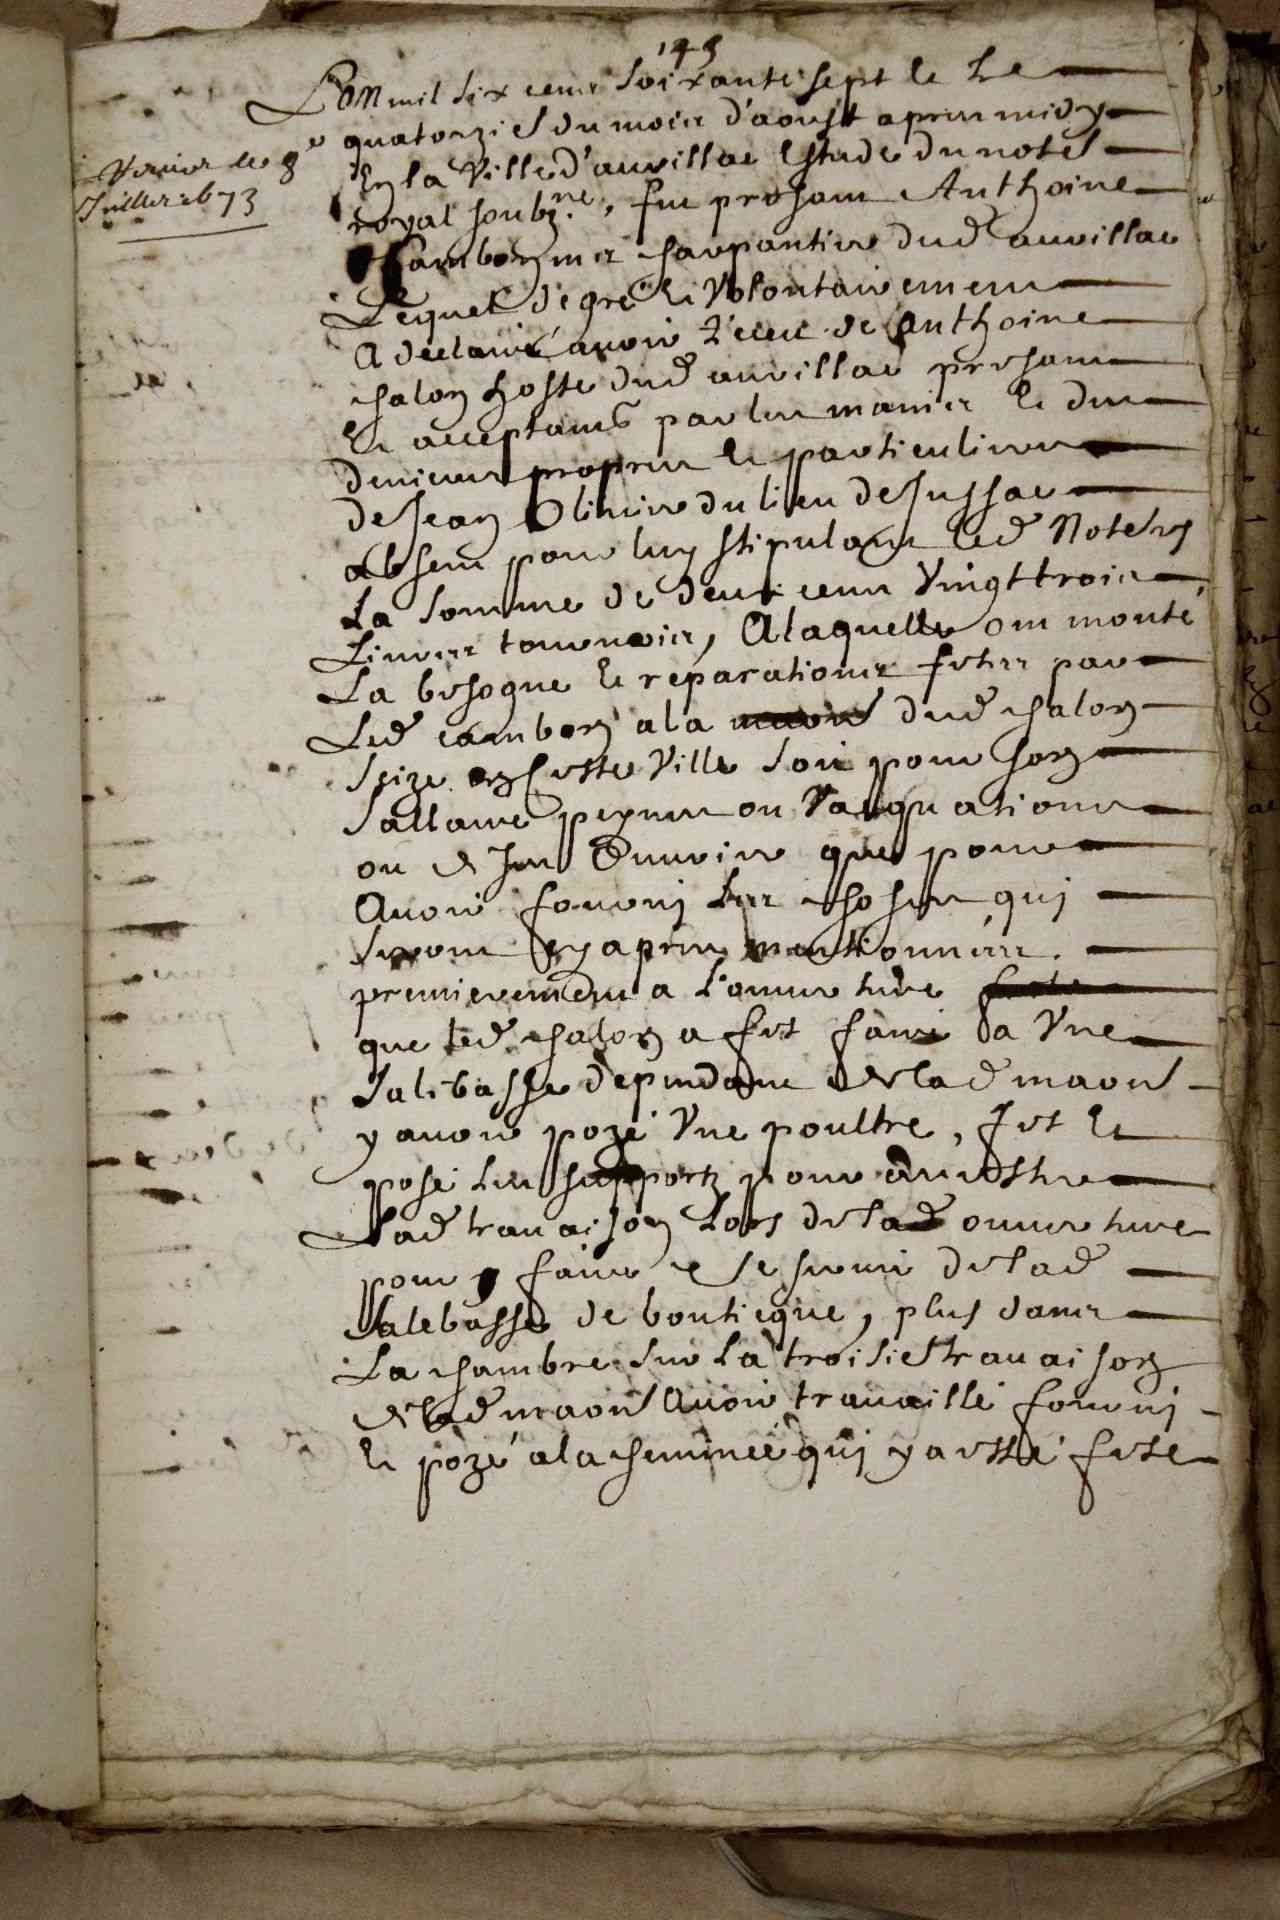 145
L'an mil six cens soixante sept le &e
quatorzie^e du moies d'aoust apres midy
En la Ville d'auvillar Estude du note^e
royal soubz^ne, fut presant Anthoine
Cambon me charpantier dud auvillar
Lequel de gré et Volontairement
A declairé avoir Receu de Anthoine
chalon hoste dud auvillar presant
Et acceptant par les mains et des
deniers propres et particuliers
de Jean Olivier du lieu de Jussac
absent pour luy stipulant led Note^re
La somme de deux cens Vingt trois
Livres tournois, A laquelle ont monté
La besogne et reparations fetes par
Led cambon a la maon dud chalon
Size en ceste Ville soit pour son
Sallaire peynes ou Vacquations
ou de ses Ouvriers que pour
Avoir fourni les choses qui
seront cy apres mentionnées.
premierement a l'ouverture
que led chalon a fet faire a Vne
sale basse dependant de lad maon
y avoir pozé Vne poultre, fet et
posé les supportz pour
Lad travaison Lors de lad ouverture
pour y faire et se servir de lad
sale basse de bouticque, plus dans
La chambre sur La troisie^e travaison
de lad maon Avoir travaillé fourni
et pozé a la cheminée qui y a esté fete
Verier le 8^e
Juillet 1673